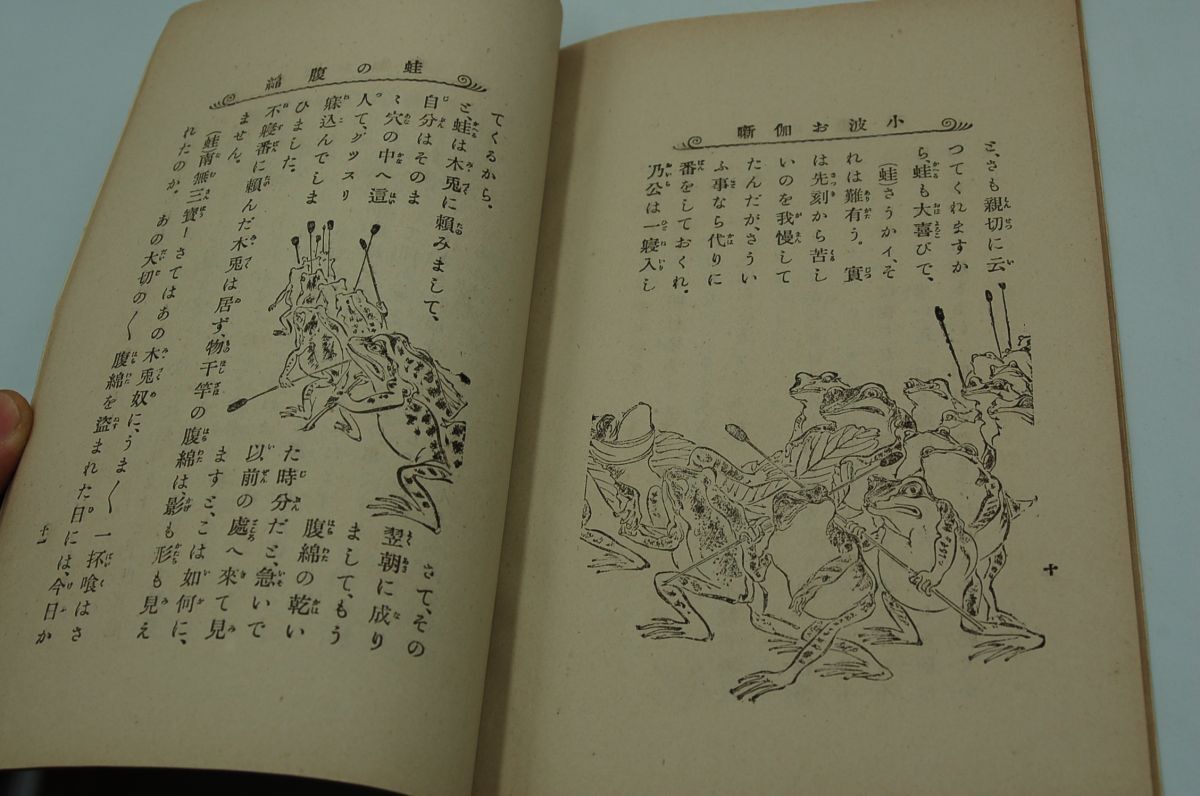 小波お伽噺
と、さも親切に云
つてくれますか
ら、蛙も大喜びで、
(蛙)さうかイ、そ
れは難有う。實
は先刻から苦し
いのを我慢して
たんだが、さうい
ふ事なら代りに
番をしておくれ。
乃公は一寢入し
十
蛙の腹綿
てくるから、
と、蛙は木兎に賴みまして、
自分はそのま
ゝ穴の中へ這
入て、グツスリ
寐込んでしま
ひました。
さて、その
翌朝に成り
まして、もう
腹綿の乾い
た時分だと、急いで
以前の處へ來て見
ますと、こは如何に、
不寢番に賴んだ木兎は居ず、物干竿の腹綿は、影も形も見え
ません。
(蛙)南無三寳!さてはあの木兎奴に、うま〱一杯喰はさ
れたのか。あの大切の〱腹綿を盜まれた日には、今日か
十一